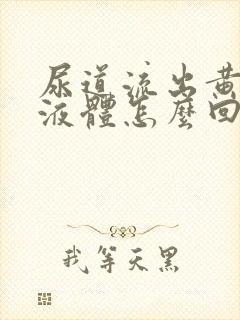 尿道流出黄
液體怎麼回
我等天黑